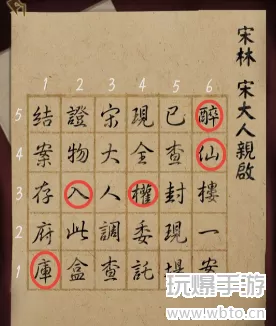 宋林 宋大人親啟
1 2 3 4 5 6
5
4
3
2
1
醉仙樓一案
已查封現場
現全權委託
宋大人調查
證物入此盒
結案存府庫
玩爆手游
www.wbto.cn